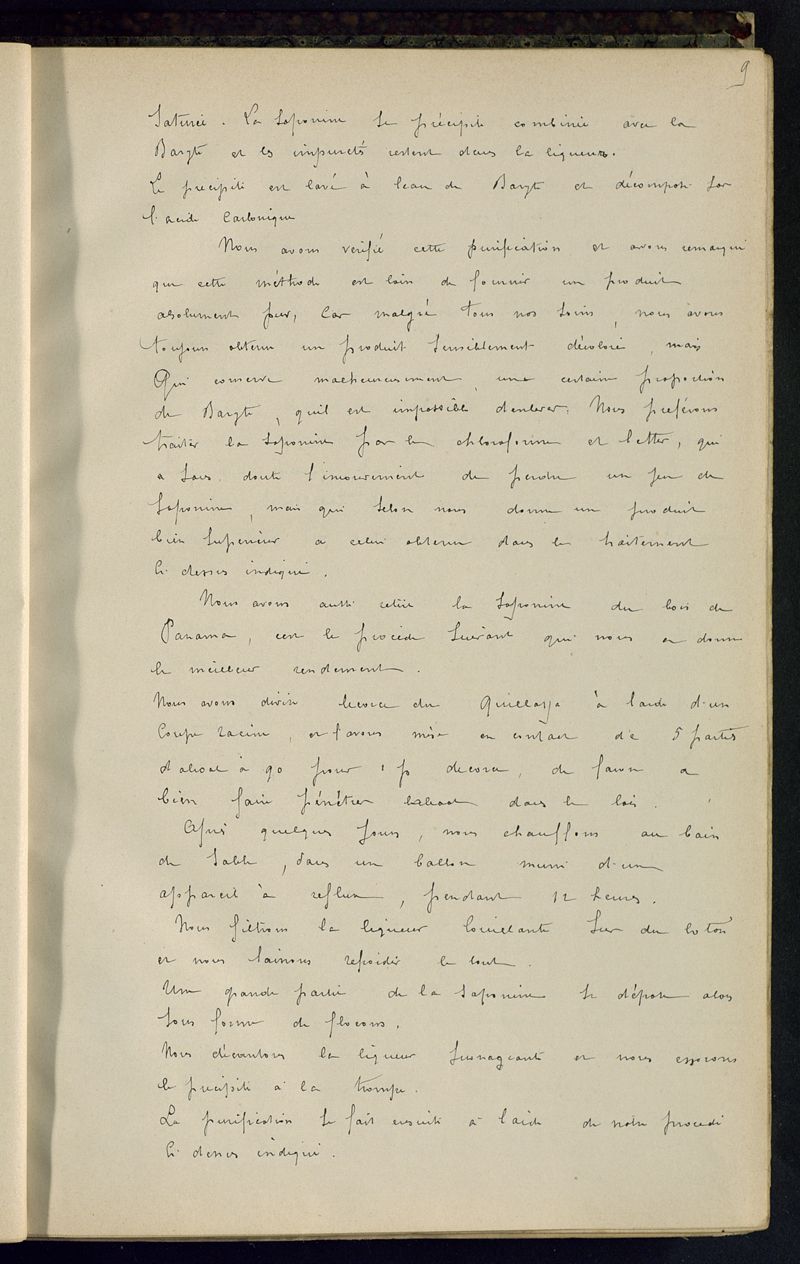 9
Saturée. La Saponine se précipite combinée avec la
Baryte et les impuretés restent dans la liqueur.
Le précipité est lavé à l'eau de Baryte et décomposé par
l'acide Carbonique
Nous avons vérifié cette purification et avons remarqué
que cette méthode est loin de fournir un produit
absolument pur, Car malgré tous nos soins, nous avons
toujours obtenu un produit sensiblement décoloré, mais
Qui conserve malheureusement, une certaine proportion
de Baryte, qu'il est impossible d'enlever. Nous préférons
traiter la Saponine par le chloroforme et l'ether, qui
a sans doute l'inconvenient de perdre un peu de
Saponine, mais qui selon nous donne un produit
bien supérieur à celui obtenu dans le traitement
ci dessus indiqué.
Nous avons aussi retiré la Saponine du bois de
Panama, c'est le procédé suivant qui nous a donné
le meilleur rendement.
Nous avons divisé l'ecorce du Quillaya à l'aide d'un
Coupe racine, et l'avons mise en contact de 5 parties
d'alcool à 90 pour 1 p d'ecorce, de facon a
bien faire pénétrer l'alcool dans le bois.
Après quelques jours, nous chauffons au bain
de Sable, dans un ballon muni d'un
appareil à reflux, pendant 12 heures.
Nous filtrons la liqueur bouillante sur du coton
et nous laissons refroidir le tout.
Une grande partie de la Saponine se dépose alors
sous forme de flocons.
Nous décantons la liqueur surnageante et nous essorons
le précipité à la trompe.
La purification se fait ensuite à l'aide de notre procédé
ci dessus indiqué.